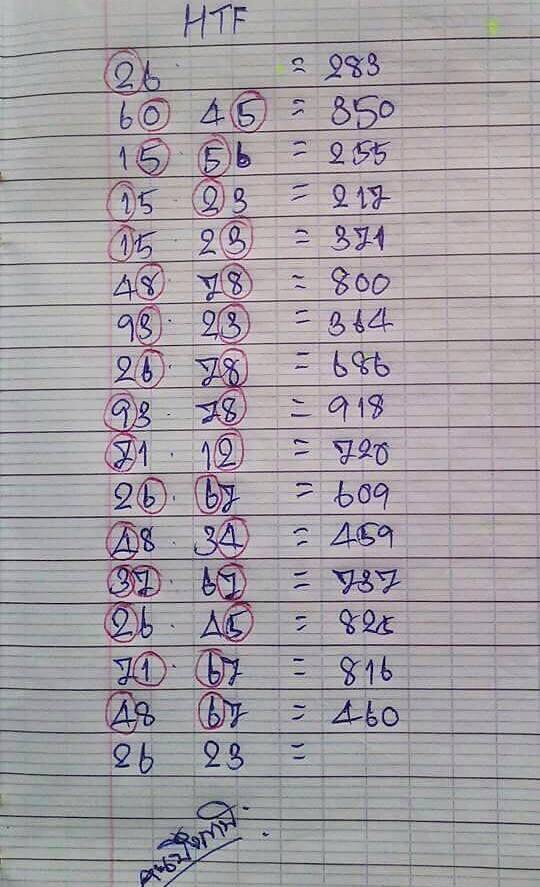 HTF
26 = 283
60 45 = 350
15 56 = 255
15 23 = 217
15 23 = 371
48 78 = 800
93 23 = 364
26 78 = 686
93 78 = 918
71 12 = 726
26 67 = 609
48 34 = 459
37 67 = 737
26 45 = 825
71 67 = 816
48 67 = 460
26 23 =